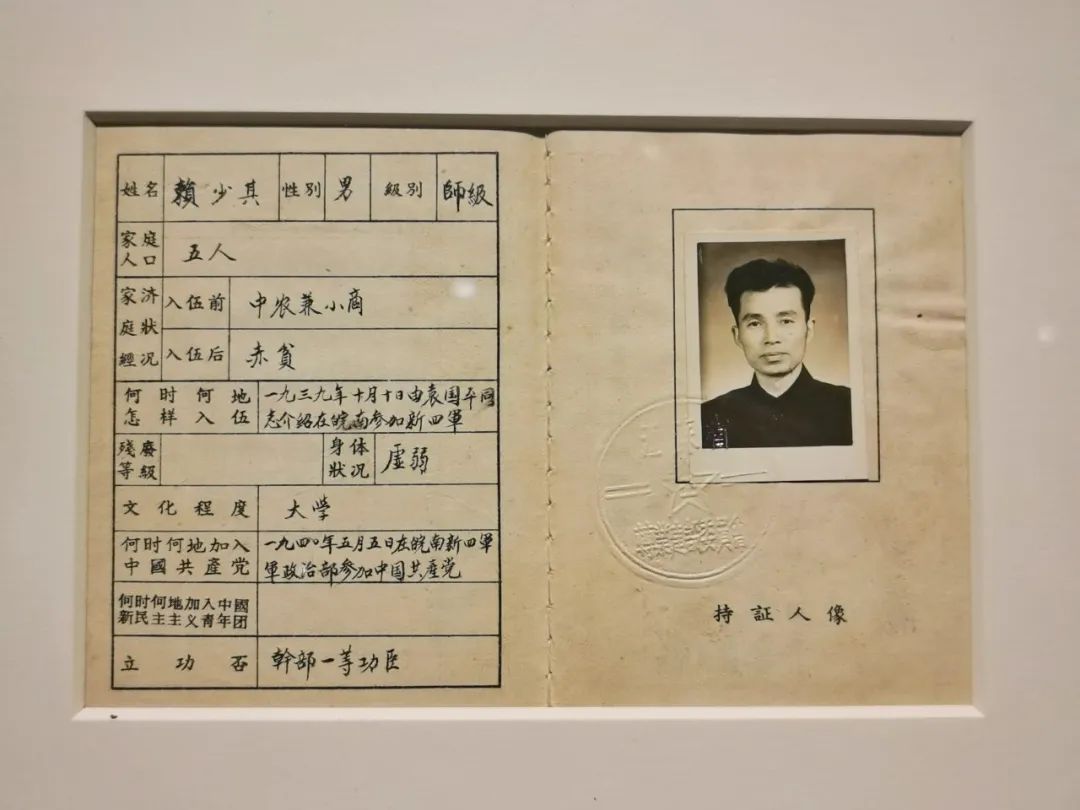 姓名 賴少其 性別 男 級別 師級
家庭人口 五人
家庭經济狀况 入伍前 中农兼小商
入伍后 赤貧
何时何地 一九三九年十月十日由袁国平同
怎样入伍 志介紹在皖南参加新四軍
殘廢等級 身体狀况 虛弱
文化程度 大學
何时何地加入 一九四〇年五月五日在皖南新四軍
中國共產党 軍政治部参加中国共產党
何时何地加入中國
新民主主义青年团
立功否 幹部一等功臣
持証人像